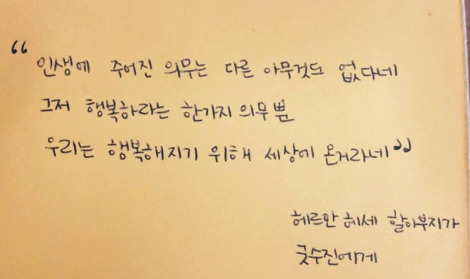 “인생에 주어진 의무는 다른 아무것도 없다네
그저 행복하라는 한가지 의무뿐
우리는 행복해지기 위해 세상에 온거라네”
헤르만 헤세 할아부지가
굿수진에게